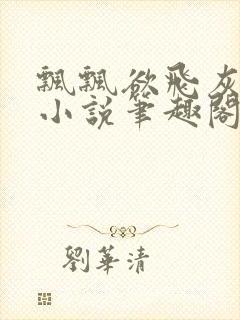 飄飄欲飛灰
小說筆趣閣
劉華清